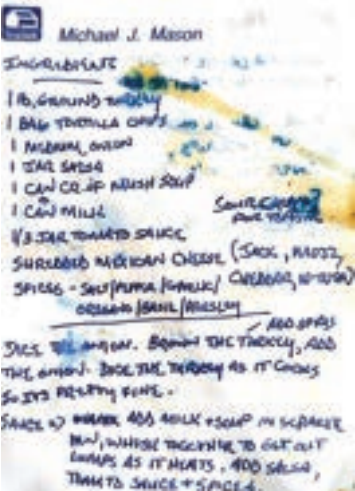 Michael J. Mason
INGREDIENTS
1 lb. GROUND TURKEY
1 BAG TORTILLA CHIPS
1 MEDIUM ONION
1 JAR SALSA
1 CAN CR. OF MUSH SOUP
1 CAN MILK
SOUR CREAM?
FOR TOPPING
1/3 JAR TOMATO SAUCE
SHREDDED MEXICAN CHEESE (JACK, MOZZ,
CHEDDAR,
SPICES - SALT/PEPPER/GARLIC/
OREGANO/BASIL/PARSLEY
ADD SPICES
DICE THE ONION. BROWN THE TURKEY, ADD
THE ONION. DICE THE TURKEY AS IT COOKS
SO IT'S PRETTY FINE.
SAUCE ADD MILK + SOUP IN SEPARATE
PAN, WHISK TOGETHER TO GET OUT
LUMPS AS IT HEATS. ADD SALSA,
TOMATO SAUCE + SPICES.